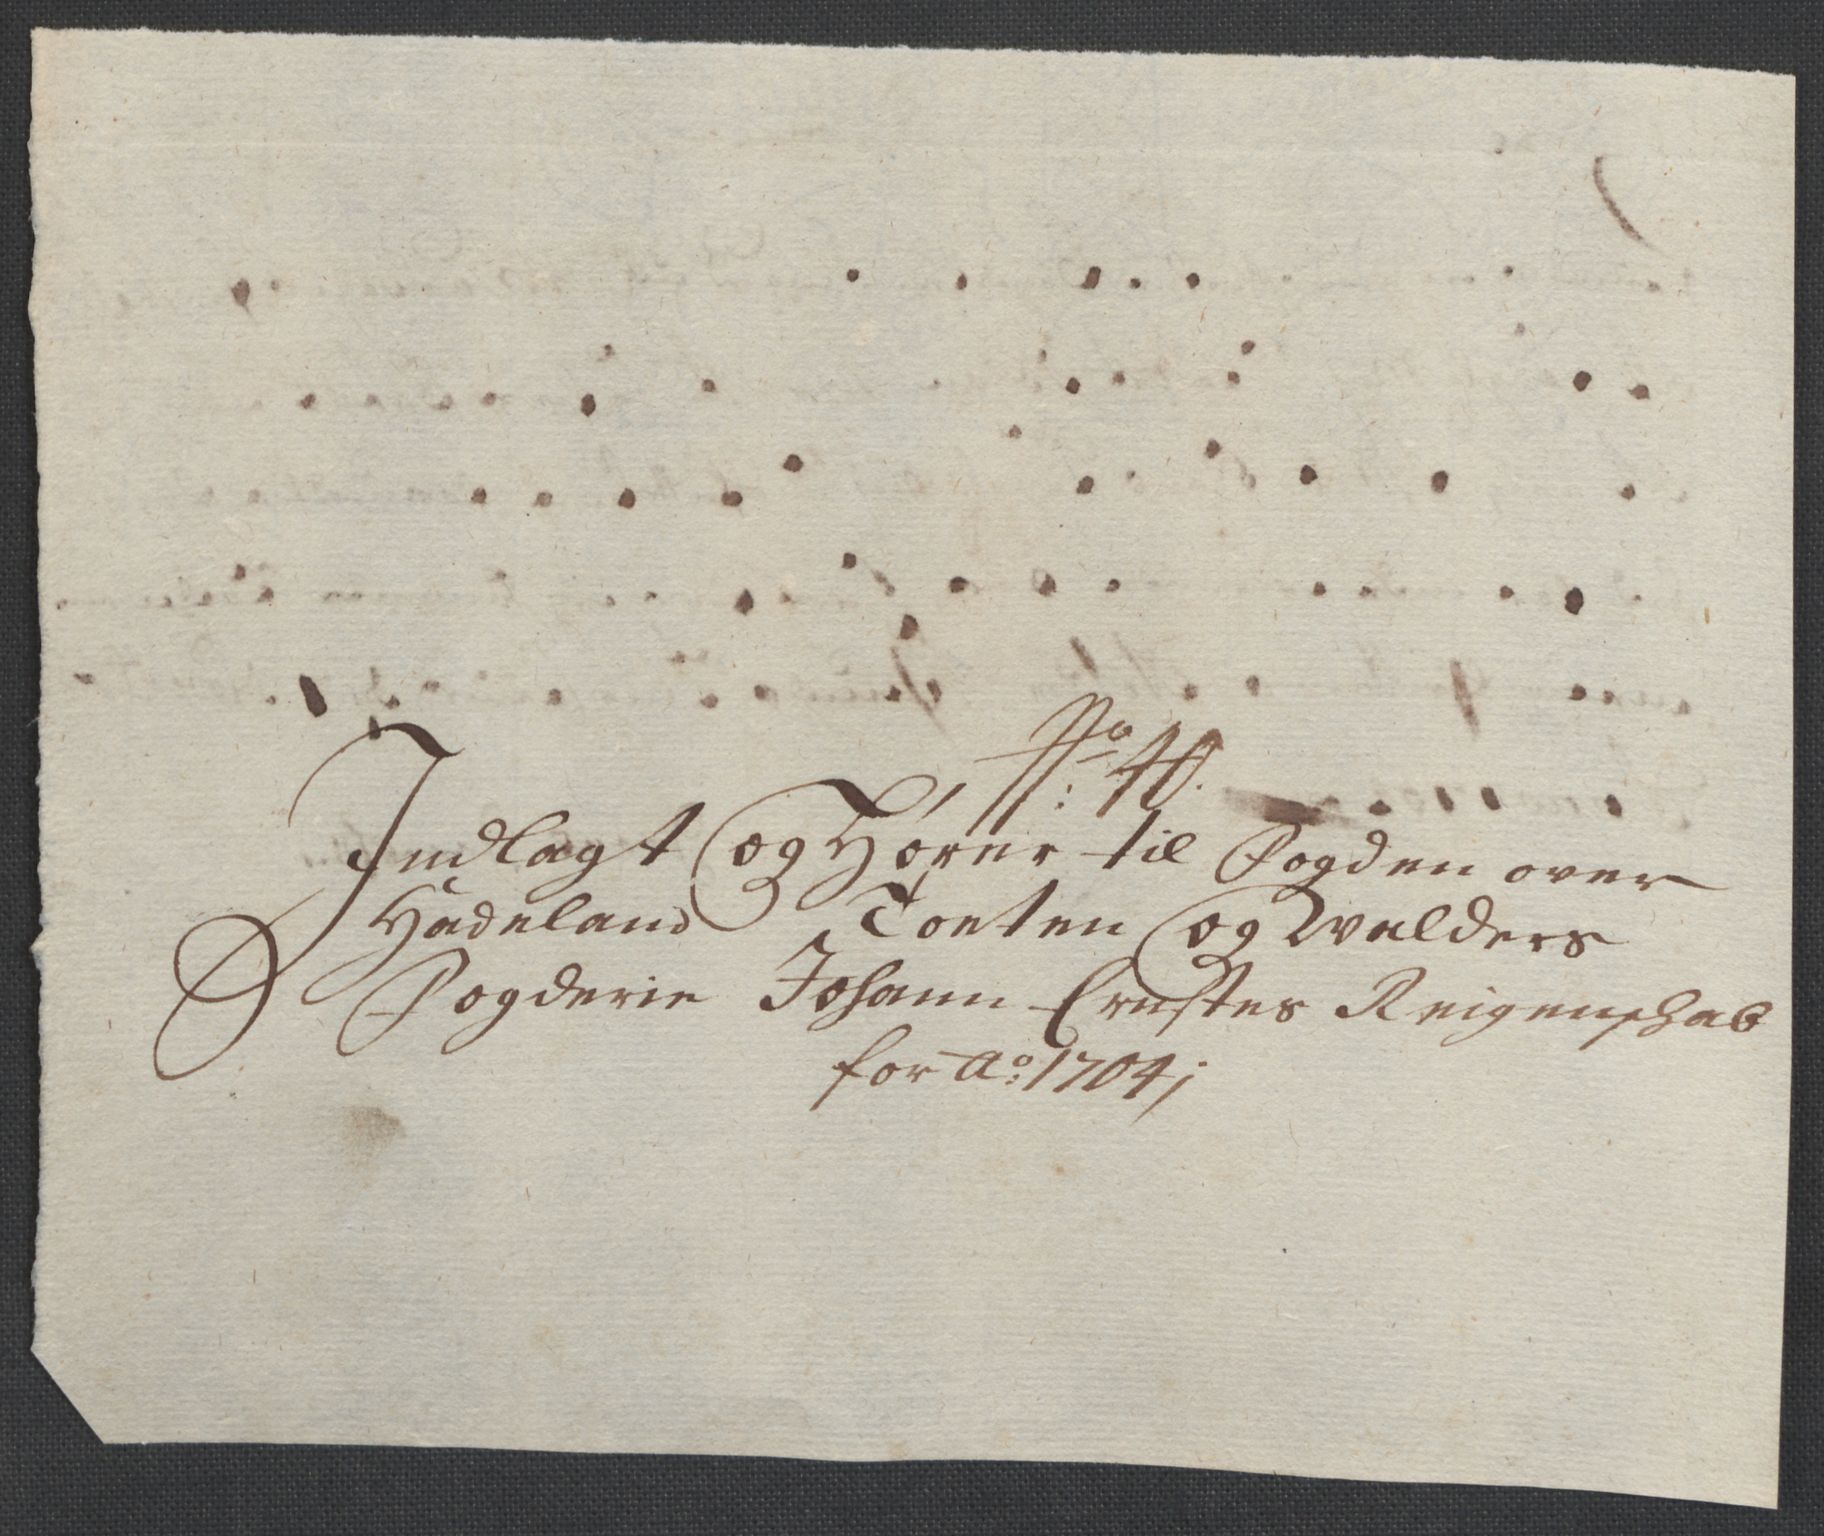 No: 40.
Indlagt og Hører til Fogden over
Hadeland Toeten og Walders
Fogderie Johann Ernstes Reigenshab
for Ao: 1704;